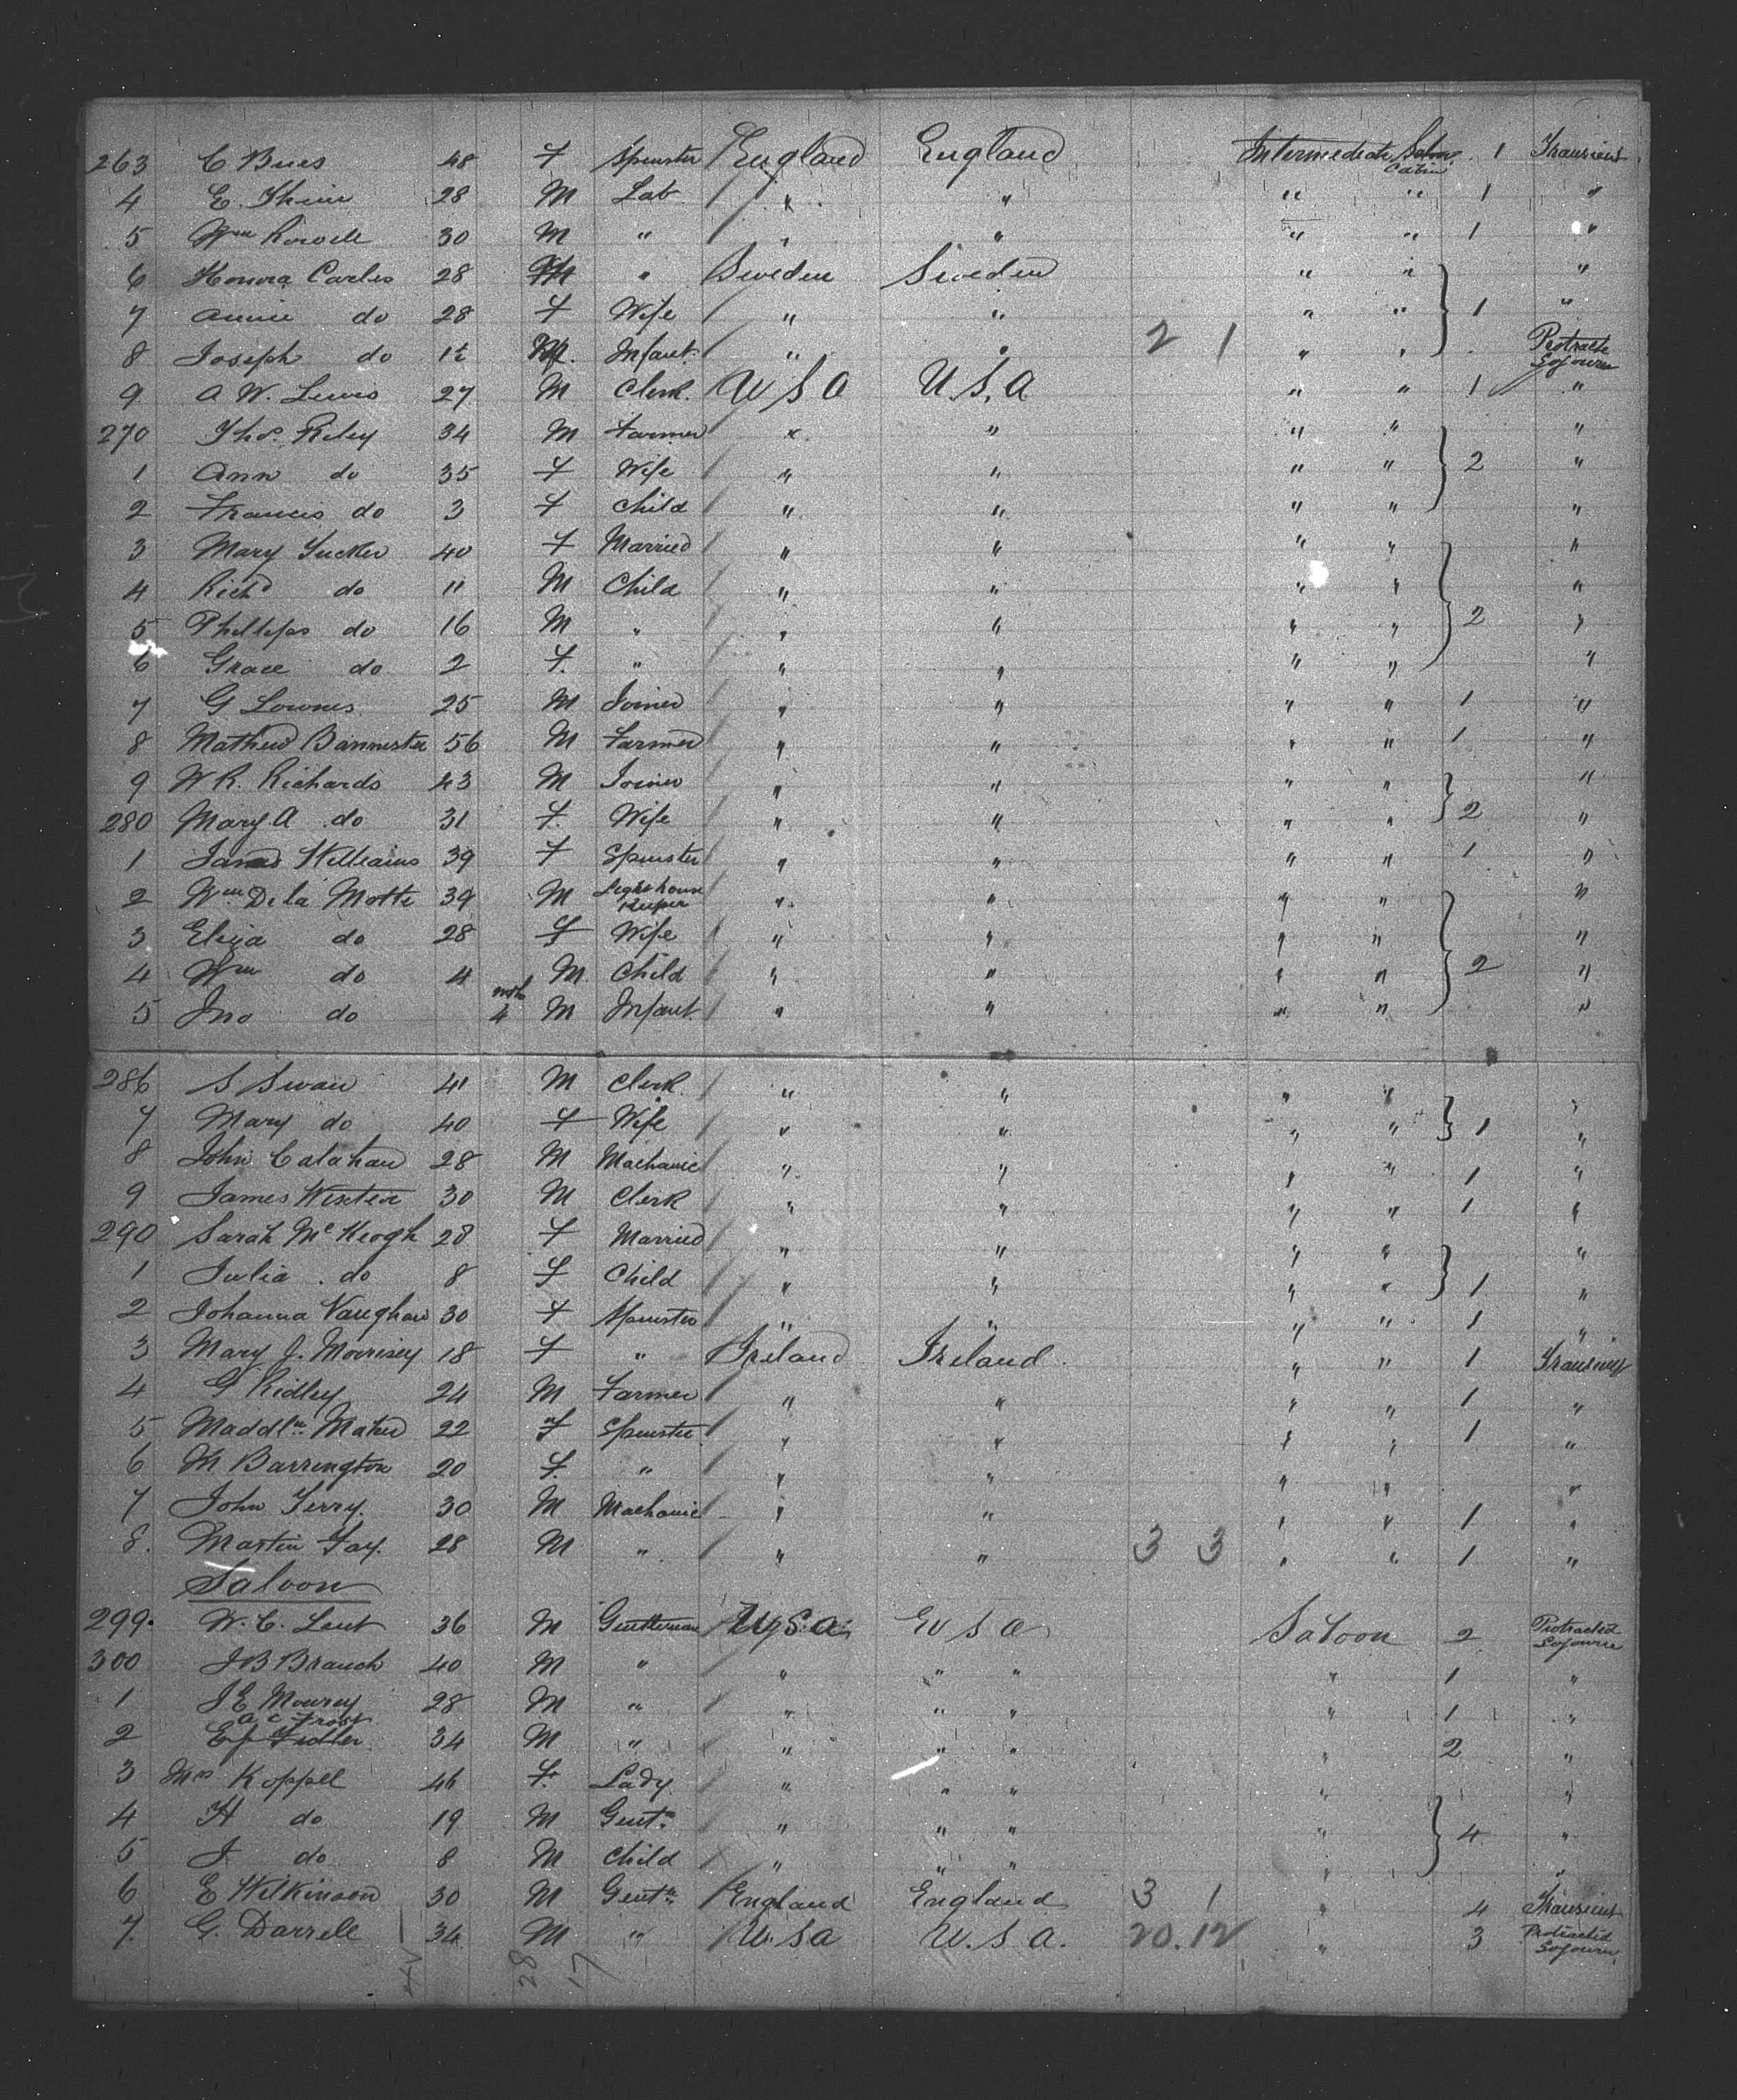 263 C Bues 48 F Spinster England England Intermediate Cabin 1 Transient
4 E. 28 M Lab " " " " 1 "
5 Wm 30 M " " " " " 1 "
6 Honora Carles 28 M " Sweden Sweden " " "
7 Annie do 28 F Wife " " " " 1 "
8 Joseph do 1½ M. Infant " " 2 1 " " Protracte Sojourn
9 A W. Lewis 27 M Clerk. U S A U.S.A " " 1 "
270 Thos. Riley 34 M Farmer " " " " "
1 Ann do 35 F Wife " " " " 2 "
2 Francis do 3 F Child " " " " "
3 Mary Tucker 40 F Married " " " " "
4 Richd do 11 M Child " " " " "
5 Phillips do 16 M " " " " " 2 "
6 Grace do 2 F. " " " " " "
7 G Lownes 25 M Joiner " " " " 1 "
8 Mathew Bannister 56 M Farmer " " " " 1 "
9 W R. Richards 43 M Joiner " " " " "
280 Mary A do 31 F. Wife " " " " 2 "
1 Williams 39 F Spinster " " " " 1 "
2 Wm De la Motte 39 M Lighthouse Keeper " " " " "
3 Eliza do 28 F Wife " " " " "
4 Wm do 4 M. Child " " " " 2 "
5 Jno do mth 4 M Infant " " " " "
286 S Swan 41 M Clerk " " " " "
7 Mary do 40 F Wife " " " " 1 "
8 John Calahan 28 M Machanic " " " " 1 "
9 James Wixter 30 M Clerk " " " " 1 "
290 Sarah McKeogh 28 F Married " " " " "
1 Julia do 8 F Child " " " " 1 "
2 Johanna Vaughan 30 F Spinster " " " " 1 "
3 Mary J. Morrisey 18 F " Ireland Ireland. " " 1 Transient
4 G Ridley 24 M Farmer " " " " 1 "
5 Maddln Maher 22 F Spinster " " " " 1 "
6 M Barrington 20 F. " " " " " "
7 John Terry. 30 M Machanic " " " " 1 "
8. Martin Fay. 28 M " " " 3 3 " " 1 "
Saloon
299. W. C. Lent 36 M Gentleman U.S.A. U S A Saloon 2 Protracted Sojourn
300 J B Branch 40 M " " " " " 1 "
1 J E Mowrey 28 M " " " " " 1 "
A C Frost
2 E J Fidler 34 M " " " " " 2 "
3 Mrs Koppel 46 F. Lady " " " " "
4 H do 19 M Gentn " " " " 4 "
5 J do 8 M Child " " " " "
6 E Wilkinson 30 M Gentn England England 3 1 " 4 Transient
7. G. Darrell 34 M " U.S.A U.S.A. 20.12 " 3 Protracted Sojourn
28 17